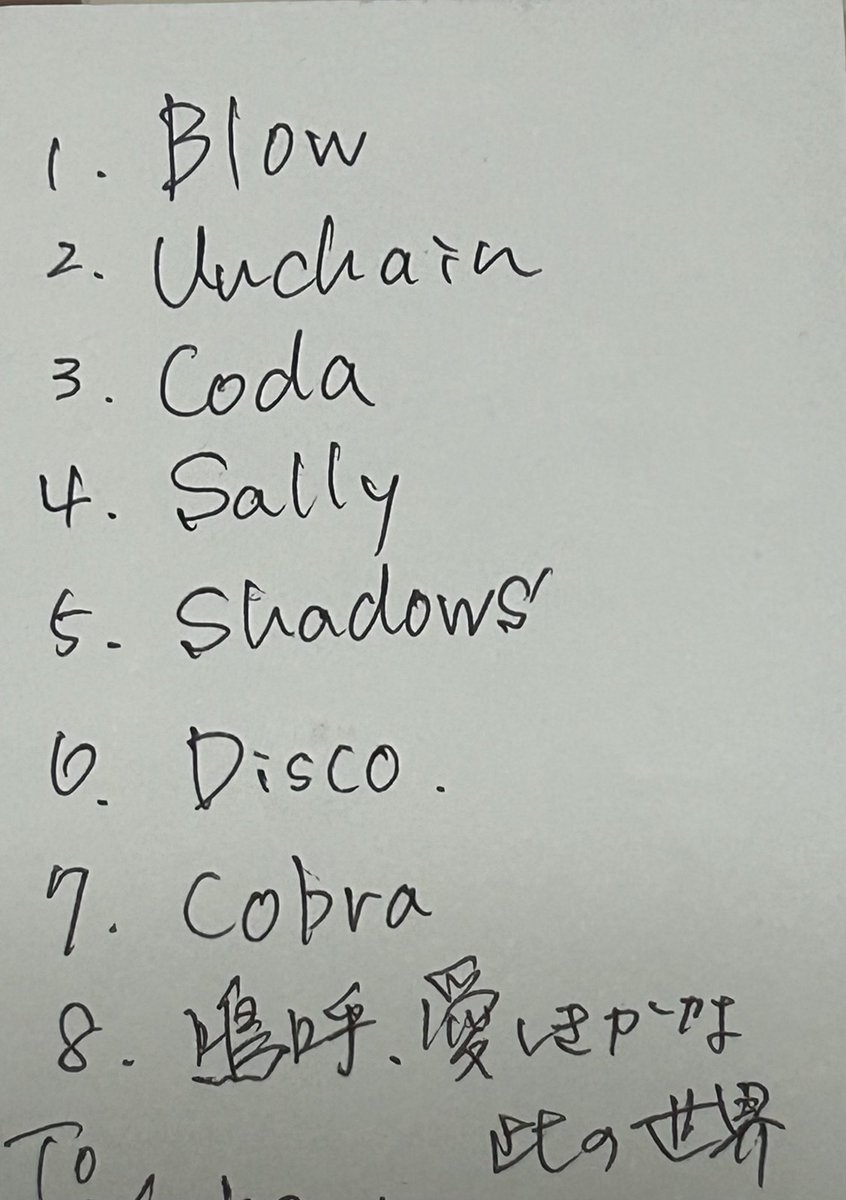 1. Blow
2. Unchain
3. Coda
4. Sally
5. Shadows
6. Disco.
7. Cobra
8. 嗚呼、愛しきかな
此の世界
To